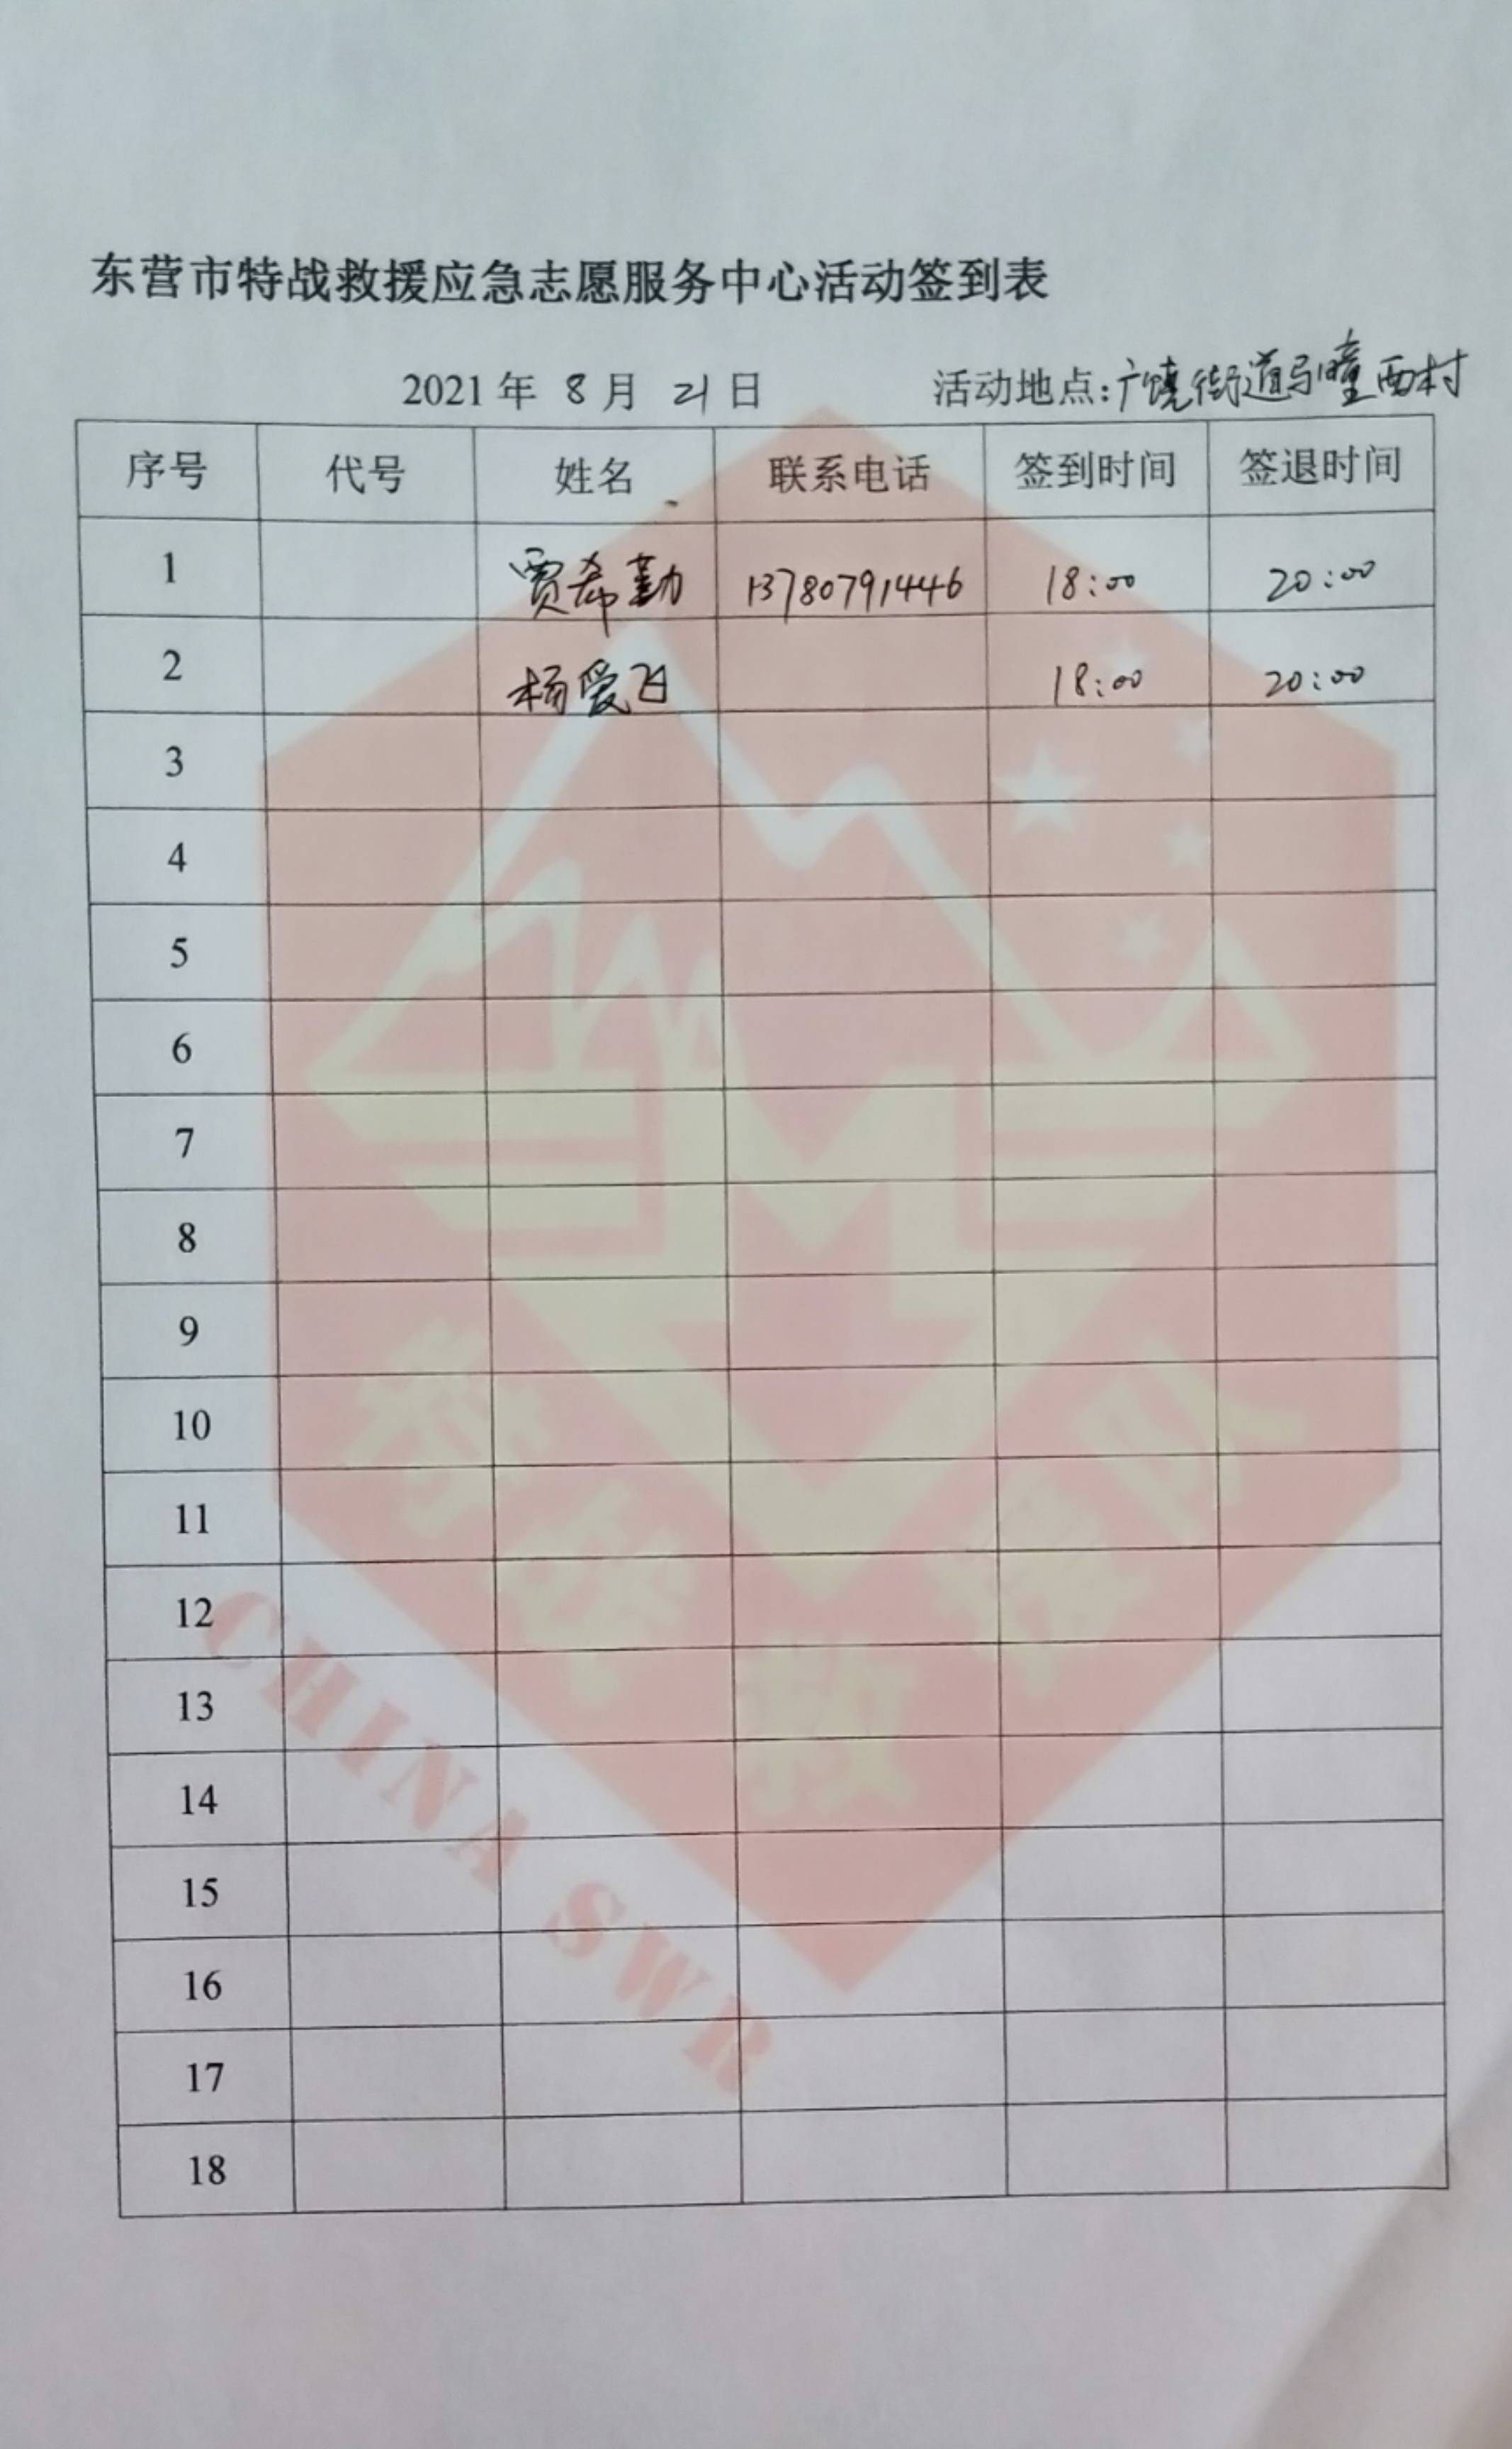 东营市特战救援应急志愿服务中心活动签到表
2021 年 8 月 21 日 活动地点:广饶街道马疃西村
序号 代号 姓名 联系电话 签到时间 签退时间
1 贾希勤 13780791446 18:00 20:00
2 杨爱飞 18:00 20:00
3
4
5
6
7
8
9
10
11
12
13
14
15
16
17
18
特战救援队
CHINA SWR